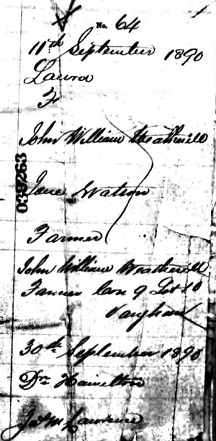 No. 64
11th September 1890
Laura
F
John William Weatherill
Jane Watson
Farmer
John William Weatherill
Farmer Con 9 Lot 10
Vaughan
30th September 1890
Dr Hamilton
Lawrence
039263